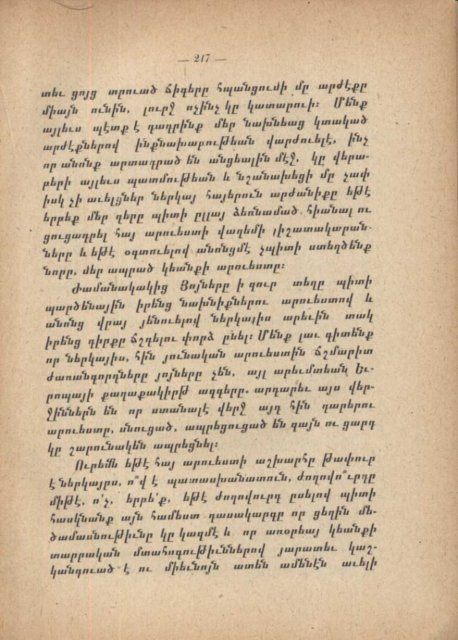 — 217 —
տեւ ցոյց տրուած ճիգերը հպանցումի մը արժէքը
միայն ունին, լուրջ ոչինչ կը կատարուի։ Մենք
այլեւս պէտք է դադրինք մեր նախնեաց կտակած
արժէքներով ինքնախաբութեան վարժուելէ, ինչ
որ անոնք արտադրած են անցեալին մէջ, կը վերա-
բերի այլեւս պատմութեան և նշանախեցի մը չափ
իսկ չի աւելցներ ներկայ հայերուն արժանիքը եթէ
երբեք մեր դերը պիտի ըլլայ ձեռնամած հիանալ ու
ցուցադրել հայ արուեստի վաղեմի յիշատակարան-
ները և եթէ օգտուելով անոնցմէ չպիտի ստեղծենք
նորը, մեր ապրած կեանքի արուեստը։
Ժամանակակից Յոյները ի զուր տեղը պիտի
պարծենային իրենց նախնիքներու արուեստով և
անոնց վրայ յենուելով ներկայիս արեւին տակ
իրենց դիրքը ճշդելու փորձ ընել։ Մենք լաւ գիտենք
որ ներկայիս, հին յունական արուեստին ճշմարիտ
ժառանգորդները յոյները չեն, այլ արեւմտեան Եւ-
րոպայի քաղաքակիրթ ազգերը. արդարեւ այս վեր-
ջիններն են որ ստանալէ վերջ այդ հին դարերու
արուեստը, սնուցած, ապրեցուցած են զայն ու ցարդ
կը շարունակեն ապրեցնել։
Ուրեմն եթէ հայ արուեստի աշխարհը թափուր
է ներկայըս, ո՞վ է պատասխանատուն, ժողովո՞ւրդը
միթէ, ո՛չ, երբե՛ք, եթէ ժողովուրդ ըսելով պիտի
հասկնանք այն համեստ դասակարգը որ ցեղին մե-
ծամասնութիւնը կը կազմէ և որ առօրեայ կեանքի
տարրական մտահոգութիւններով յարատեւ կաշ-
կանդուած է ու միեւնոյն ատեն ամենէն աւելի